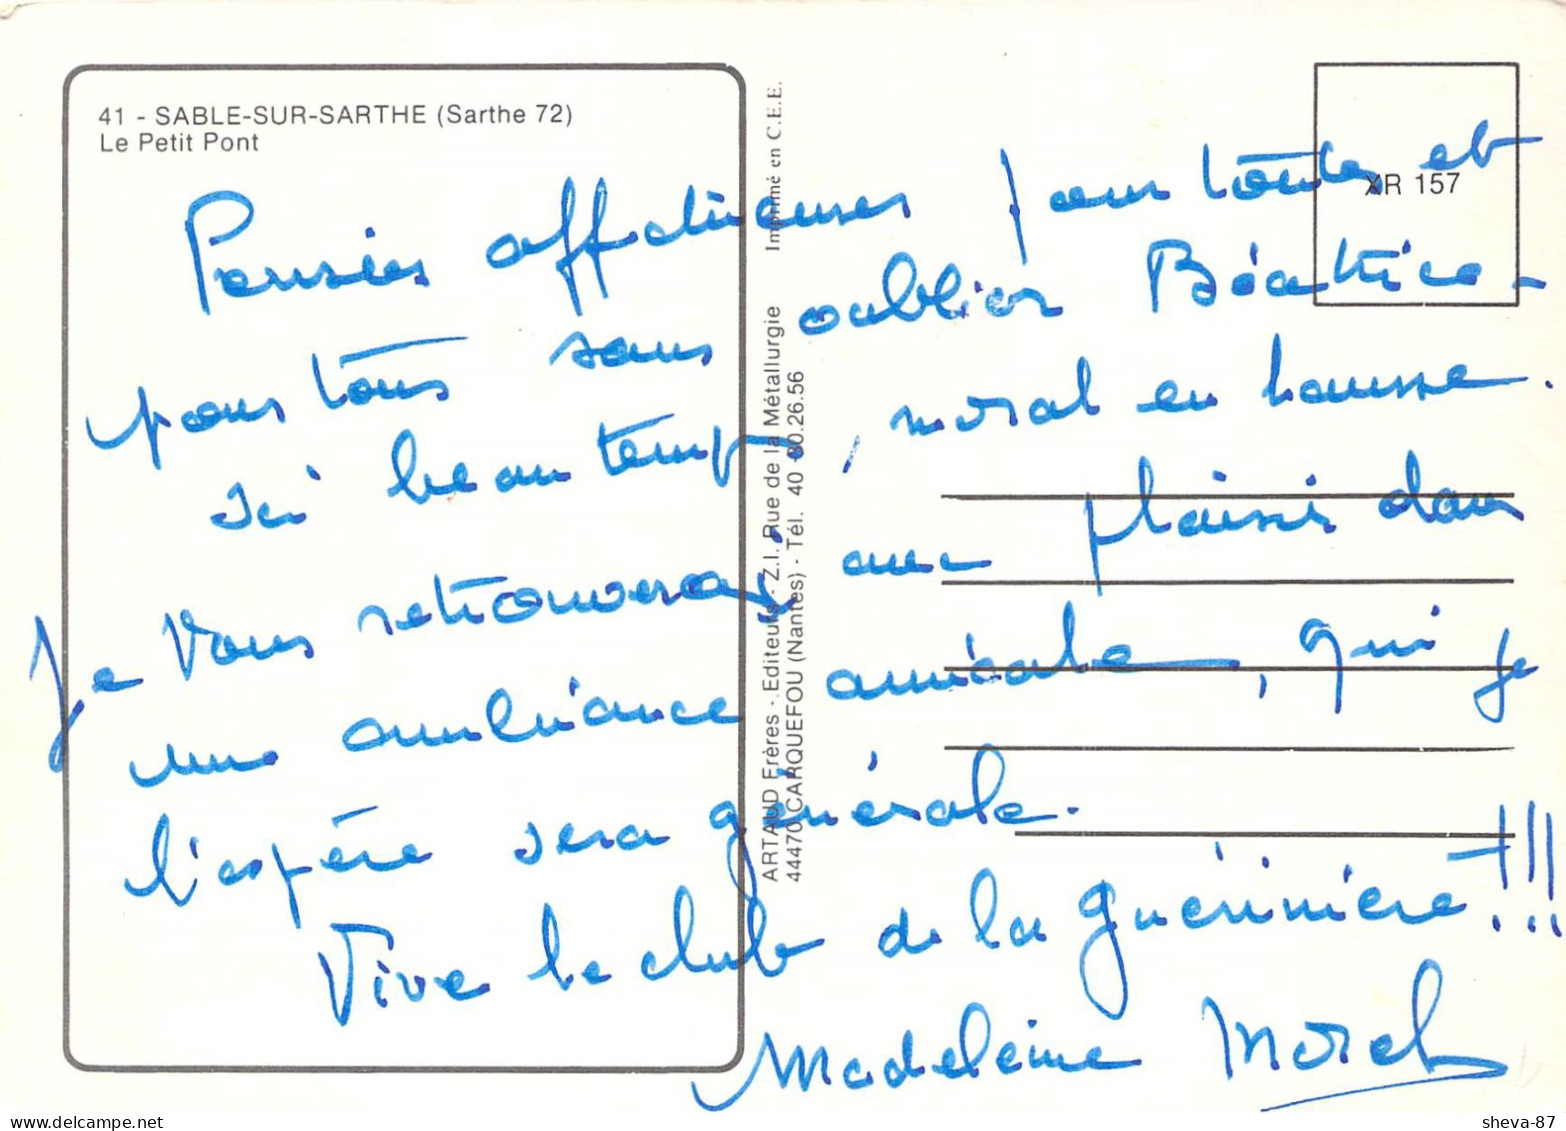 41 - SABLE-SUR-SARTHE (Sarthe 72)
Le Petit Pont
Imprimé en C.E.E.
ARTAUD Frères - Editeurs - Z.I. Rue de la Métallurgie
44470 CARQUEFOU (Nantes) - Tél. 40 30.26.56
XR 157
Pensées affectueuses pour toutes et
pour tous sans oublier Béatrice -
Ici beau temps, moral en hausse.
Je vous retrouverai avec plaisir dans
une ambiance amicale, qui je
l'espère sera générale.
Vive le club de la Guérinière !!!
Madeleine Morel
sheva-87